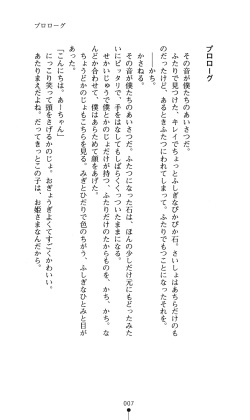 プロローグ
プロローグ
その音が僕たちのあいさつだ。
ふたりで見つけた、キレイでちょっとふしぎなぴかぴか石。さいしょはあちらだけのも
のだったけど、あるときふたつにわれてしまって。ふたりでもつことになったそれを。
かさねる。
――かち。
その音が僕たちのあいさつだ。ふたつになった石は、ほんの少しだけ元にもどったみた
いにピッタリで、手をはなしてもしばらくくっついたままになる。
せかいじゅうで僕とかのじょだけが持つ、ふたりだけのたからものを、かち、かち。な
んどか合わせて、僕はあらためて顔をあげた。
ちょうどかのじょもこちらを見る。みぎとひだりで色のちがう、ふしぎなひとみと目が
あった。
「こんにちは、あーちゃん」
にっこり笑って頭をさげるかのじょ。おぎょうぎよくてすごくかわいい。
あたりまえだよね。だってきっとこの子は、お姫さまなんだから。
007